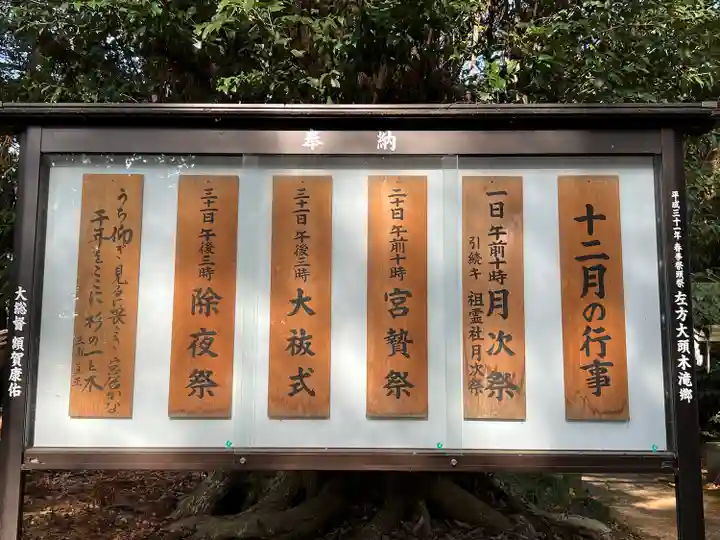 奉納
平成三十一年 春季祭頭祭 左方大頭木滝郷
十二月の行事
一日 午前十時 月次祭
引続キ 祖霊社月次祭
二十日 午前十時 宮贄祭
三十一日 午後三時 大祓式
三十一日 午後三時 除夜祭
うち仰ぎ見るに畏き宮居かな
千年をここに杉の一と木
大総督 額賀康佑